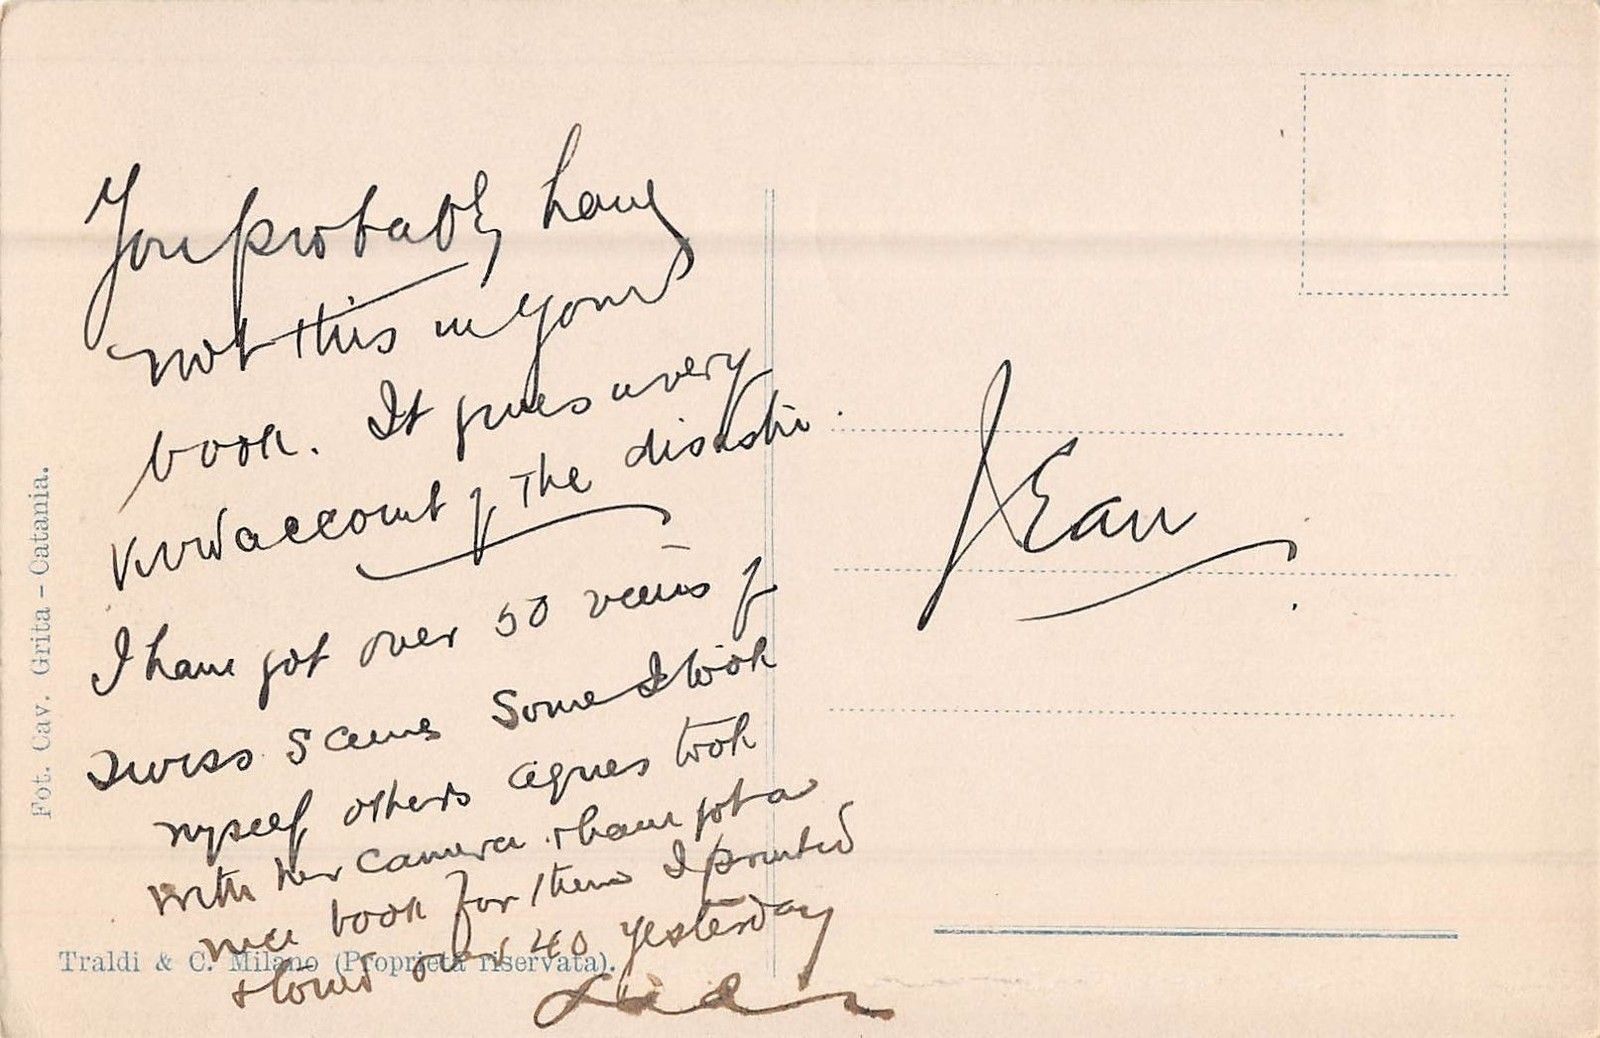 You probably have
not this in your
book. It gives a very
vivid account of the disaster
I have got over 50 views of
Swiss Scenes Some I took
myself others Agnes took
with her camera. I have got a
nice book for them I printed
& toned over 40 yesterday
Jean
Fot. Cav. Grita - Catania.
Traldi & C. Milano (Proprietà riservata).